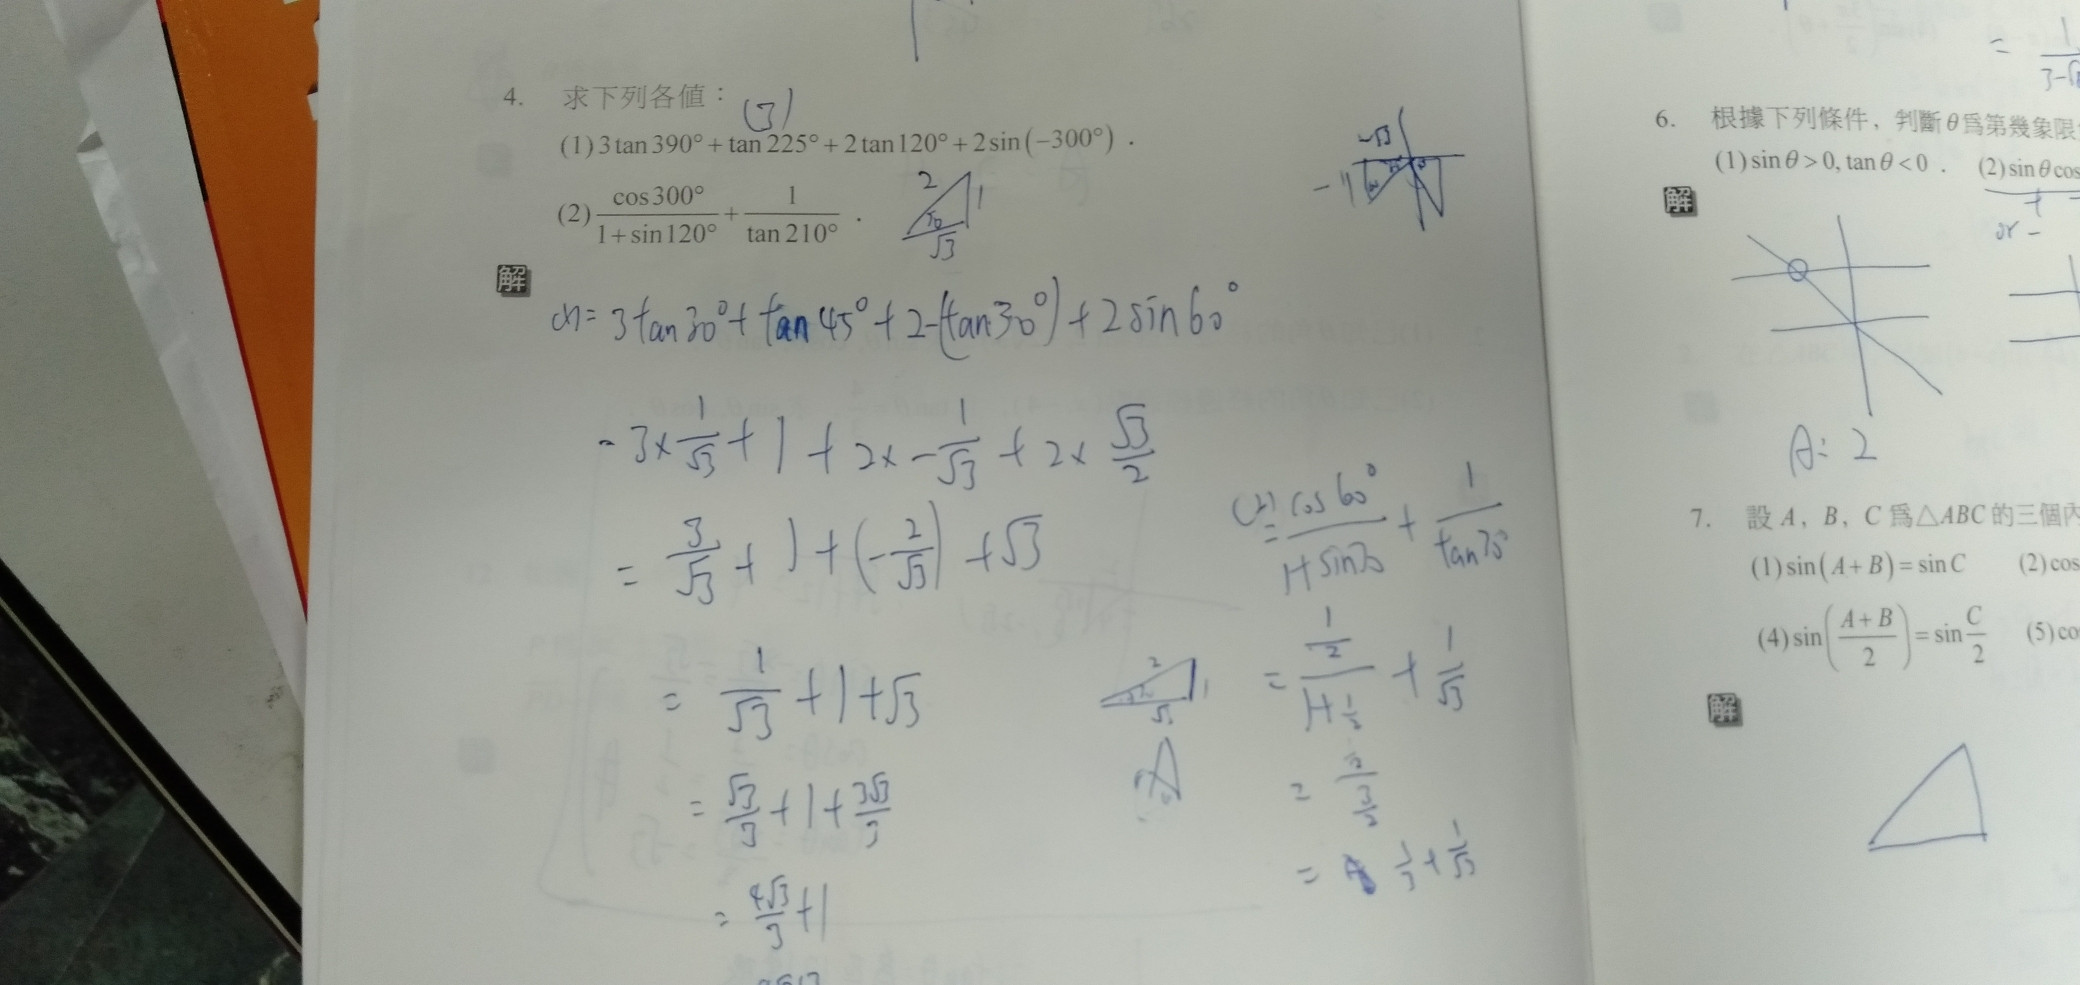 4. 求下列各値：
(3)
(1) 3 tan 390° + tan 225° + 2 tan 120° + 2 sin(−300°) .
(2) cos 300° / (1 + sin 120°) + 1 / tan 210° .
2
1
30
√3
-√3
解
(1)= 3 tan 30° + tan 45° + 2-(tan 30°) + 2 sin 60°
= 3× 1/√3 + 1 + 2× -1/√3 + 2× √3/2
= 3/√3 + 1 + (-2/√3) + √3
= 1/√3 + 1 + √3
= √3/3 + 1 + 3√3/3
= 4√3/3 + 1
2
1
√3
(2)
= cos 60° / (1+ sin 30) + 1 / tan 30
= (1/2) / (1+ 1/2) + 1/√3
= (1/2) / (3/2)
= 1/3 + 1/√3
=
1
3-√
6. 根據下列條件，判斷 θ 爲第幾象限
(1) sin θ > 0, tan θ < 0 . (2) sin θ cos
+
or -
解
A: 2
7. 設 A，B，C 爲△ABC 的三個內
(1) sin(A + B) = sin C (2) cos
(4) sin((A + B) / 2) = sin C/2 (5) co
解